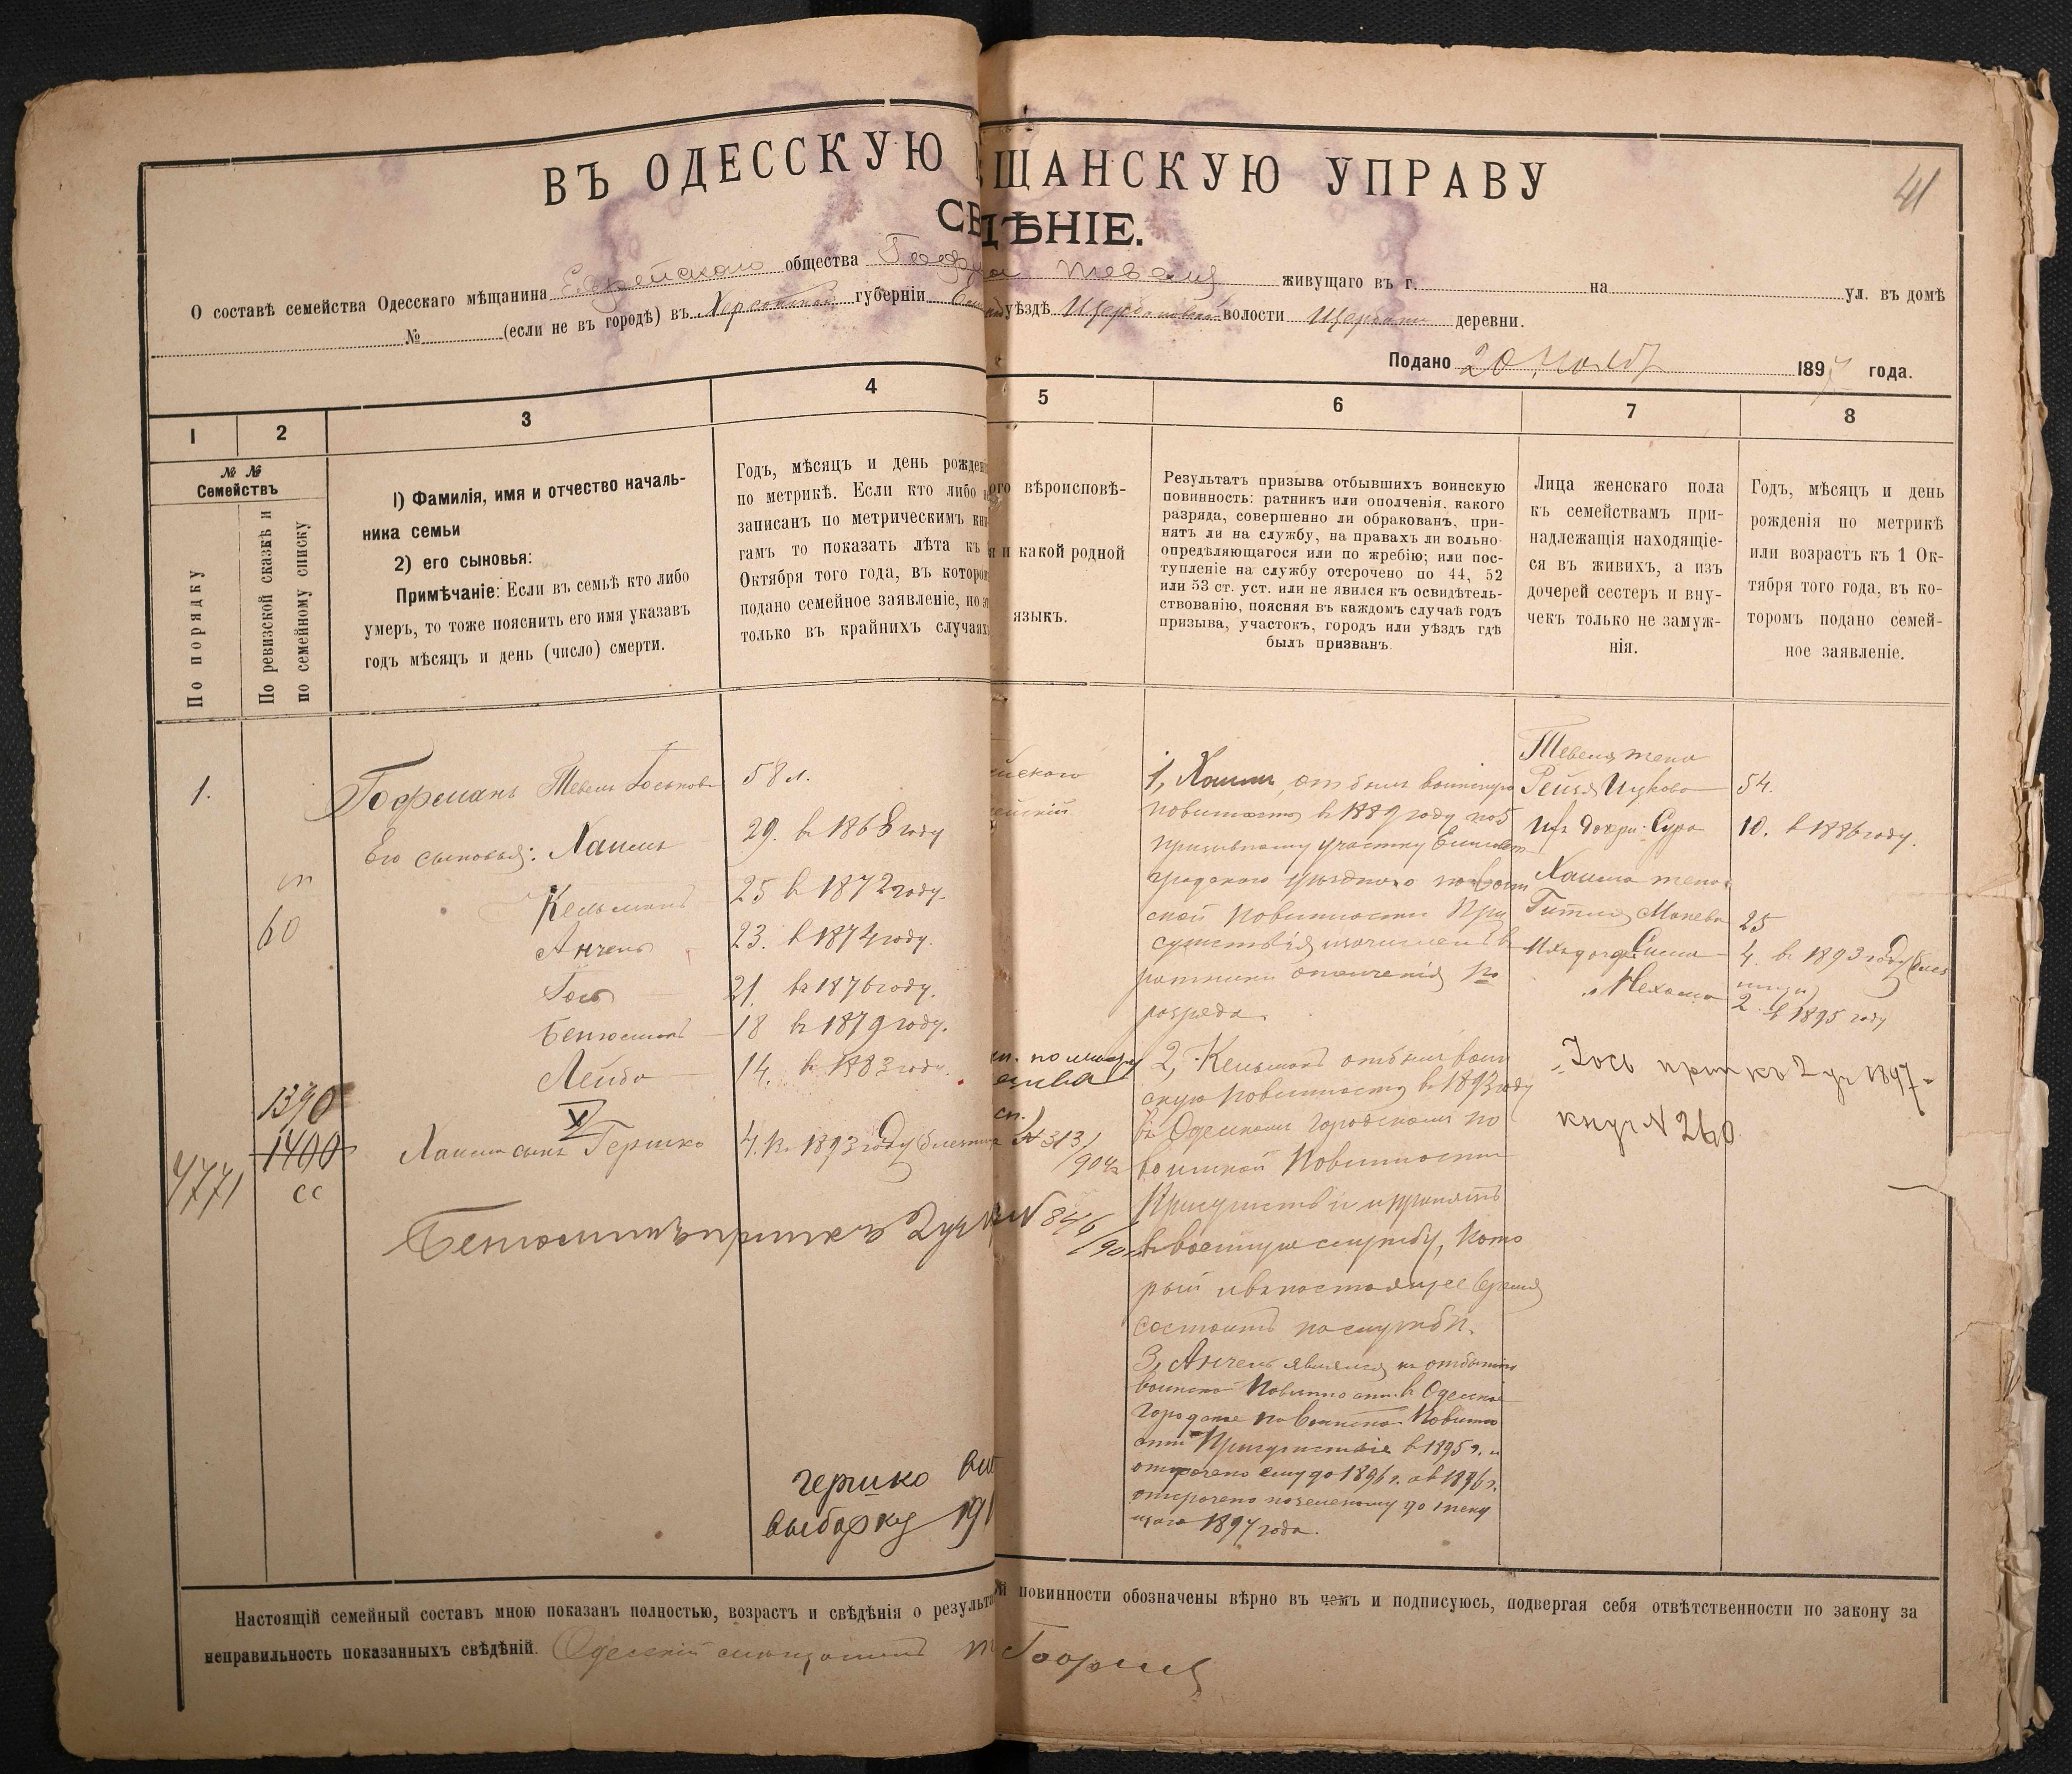 41
ВЪ ОДЕССКУЮ ЩАНСКУЮ УПРАВУ
СВ ДѢНІЕ.
О составѣ семейства Одесскаго мѣщанина Еврейскаго общества Гофма Тевеля живущаго въ г. на ул. въ домѣ
№ (если не въ городѣ) въ Херсонской губерніи уѣздѣ волости Щербани деревни.
Подано 20 1897 года.
1 2 3 4 5 6 7 8
№ №
Семействъ
По порядку
По ревизской сказкѣ и
по семейному списку
1) Фамилія, имя и отчество началь-
ника семьи
2) его сыновья:
Примѣчаніе: Если въ семьѣ кто либо
умеръ, то тоже пояснить его имя указавъ
годъ мѣсяцъ и день (число) смерти.
Годъ, мѣсяцъ и день рожден
по метрикѣ. Если кто либо
записанъ по метрическимъ кн
гамъ то показать лѣта къ
Октября того года, въ котор
подано семейное заявленіе, но э
только въ крайнихъ случаях
ого вѣроисповѣ-
я и какой родной
языкъ.
Результатъ призыва отбывшихъ воинскую
повинность: ратникъ или ополченія, какого
разряда, совершенно ли обракованъ, при-
нятъ ли на службу, на правахъ ли вольно-
опредѣляющагося или по жребію; или пос-
тупленіе на службу отсрочено по 44, 52
или 53 ст. уст. или не явился къ освидѣтель-
ствованію, поясняя въ каждомъ случаѣ годъ
призыва, участокъ, городъ или уѣздъ гдѣ
былъ призванъ.
Лица женскаго пола
къ семействамъ при-
надлежащія находящіе-
ся въ живихъ, а изъ
дочерей сестеръ и вну-
чекъ только не замуж-
нія.
Годъ, мѣсяцъ и день
рожденія по метрикѣ
или возрастъ къ 1 Ок-
тября того года, въ ко-
торомъ подано семей-
ное заявленіе.
1.
Гофманъ Тевель Іоськовъ 58 л.
Его сыновья: Хаимъ 29. въ 1868 году
Кельманъ 25 въ 1872 году.
60
Анчель 23. въ 1874 году.
Іось 21. въ 1876 году.
Бенюминъ 18 въ 1879 году.
Лейба 14. въ 1883 году.
1390
1400
СС
4771
Хаима сынъ Гершко 4. въ 1893 году
№ 313/904
Бенюминъ припис къ 2 уч № 846/90
гершко
выборку 191
1, Хаимъ, отбылъ воинскую
повинность въ 1889 году по 5
призывному участку Елисавет
градского уѣздного по воин
ской повинности При
сутствія и зачисленъ въ
ратники ополченія
разряда.
2, Кельманъ отбылъ воин
скую повинность въ 1893 году
въ Одесскомъ Городскомъ по
воинской Повинности
Присутствіи и принятъ
въ военную службу, кото
рый и въ настоящее время
состоитъ на службѣ.
3, Анчель явился къ отбытію
воинской Повинности въ Одесское
Городское по воинской Повинно
сти Присутствіе въ 1895 г. и
отсрочено ему до 1896 г. а въ 1896 г.
отсрочено до теку
щаго 1897 года.
Тевеля жена
Рейзя Ицкова 54.
Ихъ дочри: Сура 10. въ 1886 году.
Хаима жена
Гитля Манева 25
4. въ 1893 году
Нехама 2 въ 1895 году
Іось прип къ 2 уч 1897
книг N 260
Настоящій семейный составъ мною показанъ полностью, возрастъ и свѣдѣнія о результа й повинности обозначены вѣрно въ чемъ и подписуюсь, подвергая себя отвѣтственности по закону за
неправильность показанныхъ свѣдѣній. Одесскій мѣщанинъ Т Гофман